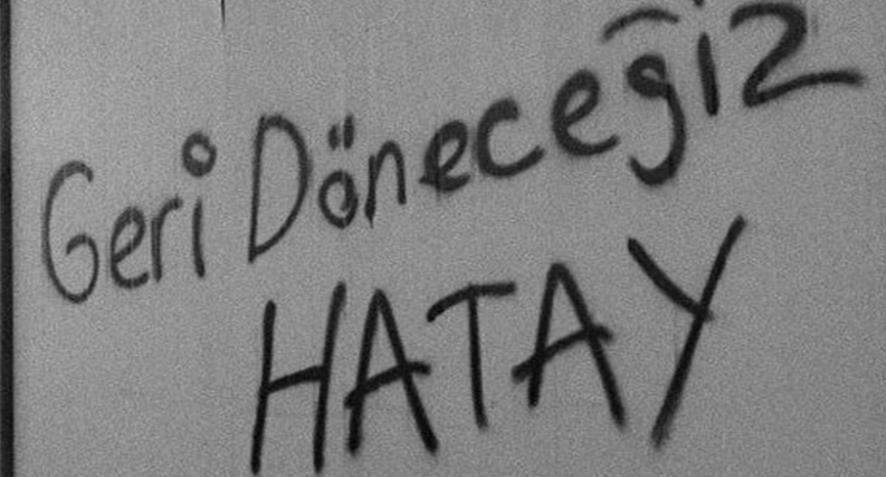 Geri Döneceğiz
HATAY